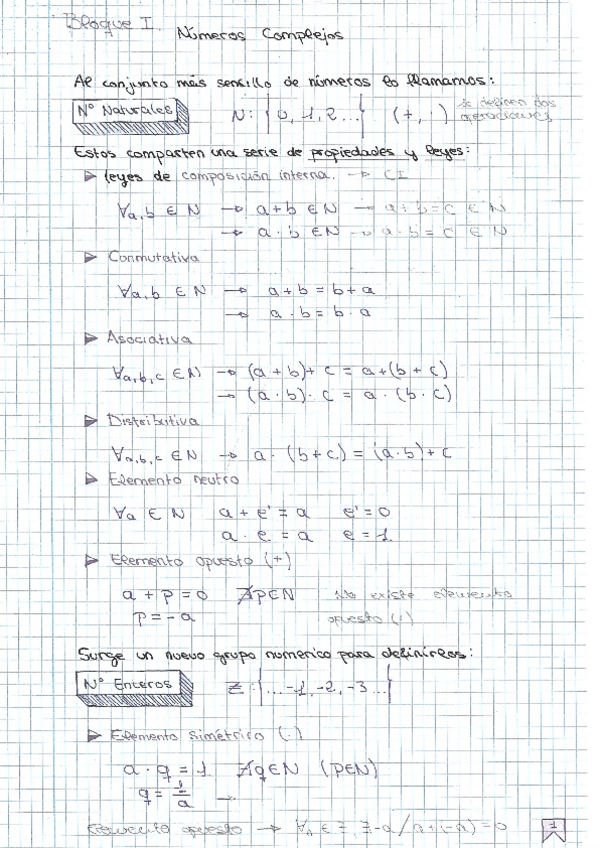 Bloque I.
Números Complejos
Al conjunto más sencillo de números lo llamamos:
Nº Naturales N: {0, 1, 2...} (+, ·) se definen dos operaciones
Estos comparten una serie de propiedades y leyes:
➤ Leyes de composición interna. → CI
∀a,b ∈ N → a+b ∈ N → a+b=c ∈ N
→ a·b ∈ N → a·b=c ∈ N
➤ Conmutativa
∀a,b ∈ N → a+b = b+a
→ a·b = b·a
➤ Asociativa
∀a,b,c ∈ N → (a+b)+c = a+(b+c)
→ (a·b)·c = a·(b·c)
➤ Distributiva
∀a,b,c ∈ N → a·(b+c) = (a·b)+c
➤ Elemento neutro
∀a ∈ N a+e' = a e'=0
a·e = a e=1.
➤ Elemento opuesto (+)
a+p=0 ∄p∈N No existe elemento
p=-a opuesto (·)
Surge un nuevo grupo numerico para definirlos:
Nº Enteros Z: {...-1, -2, -3...}
➤ Elemento simétrico (·)
a·q=1. ∄q∈N (p∈N)
q=1/a →
Elemento opuesto → ∀n ∈ Z, ∃-n/n+(-n)=0
1